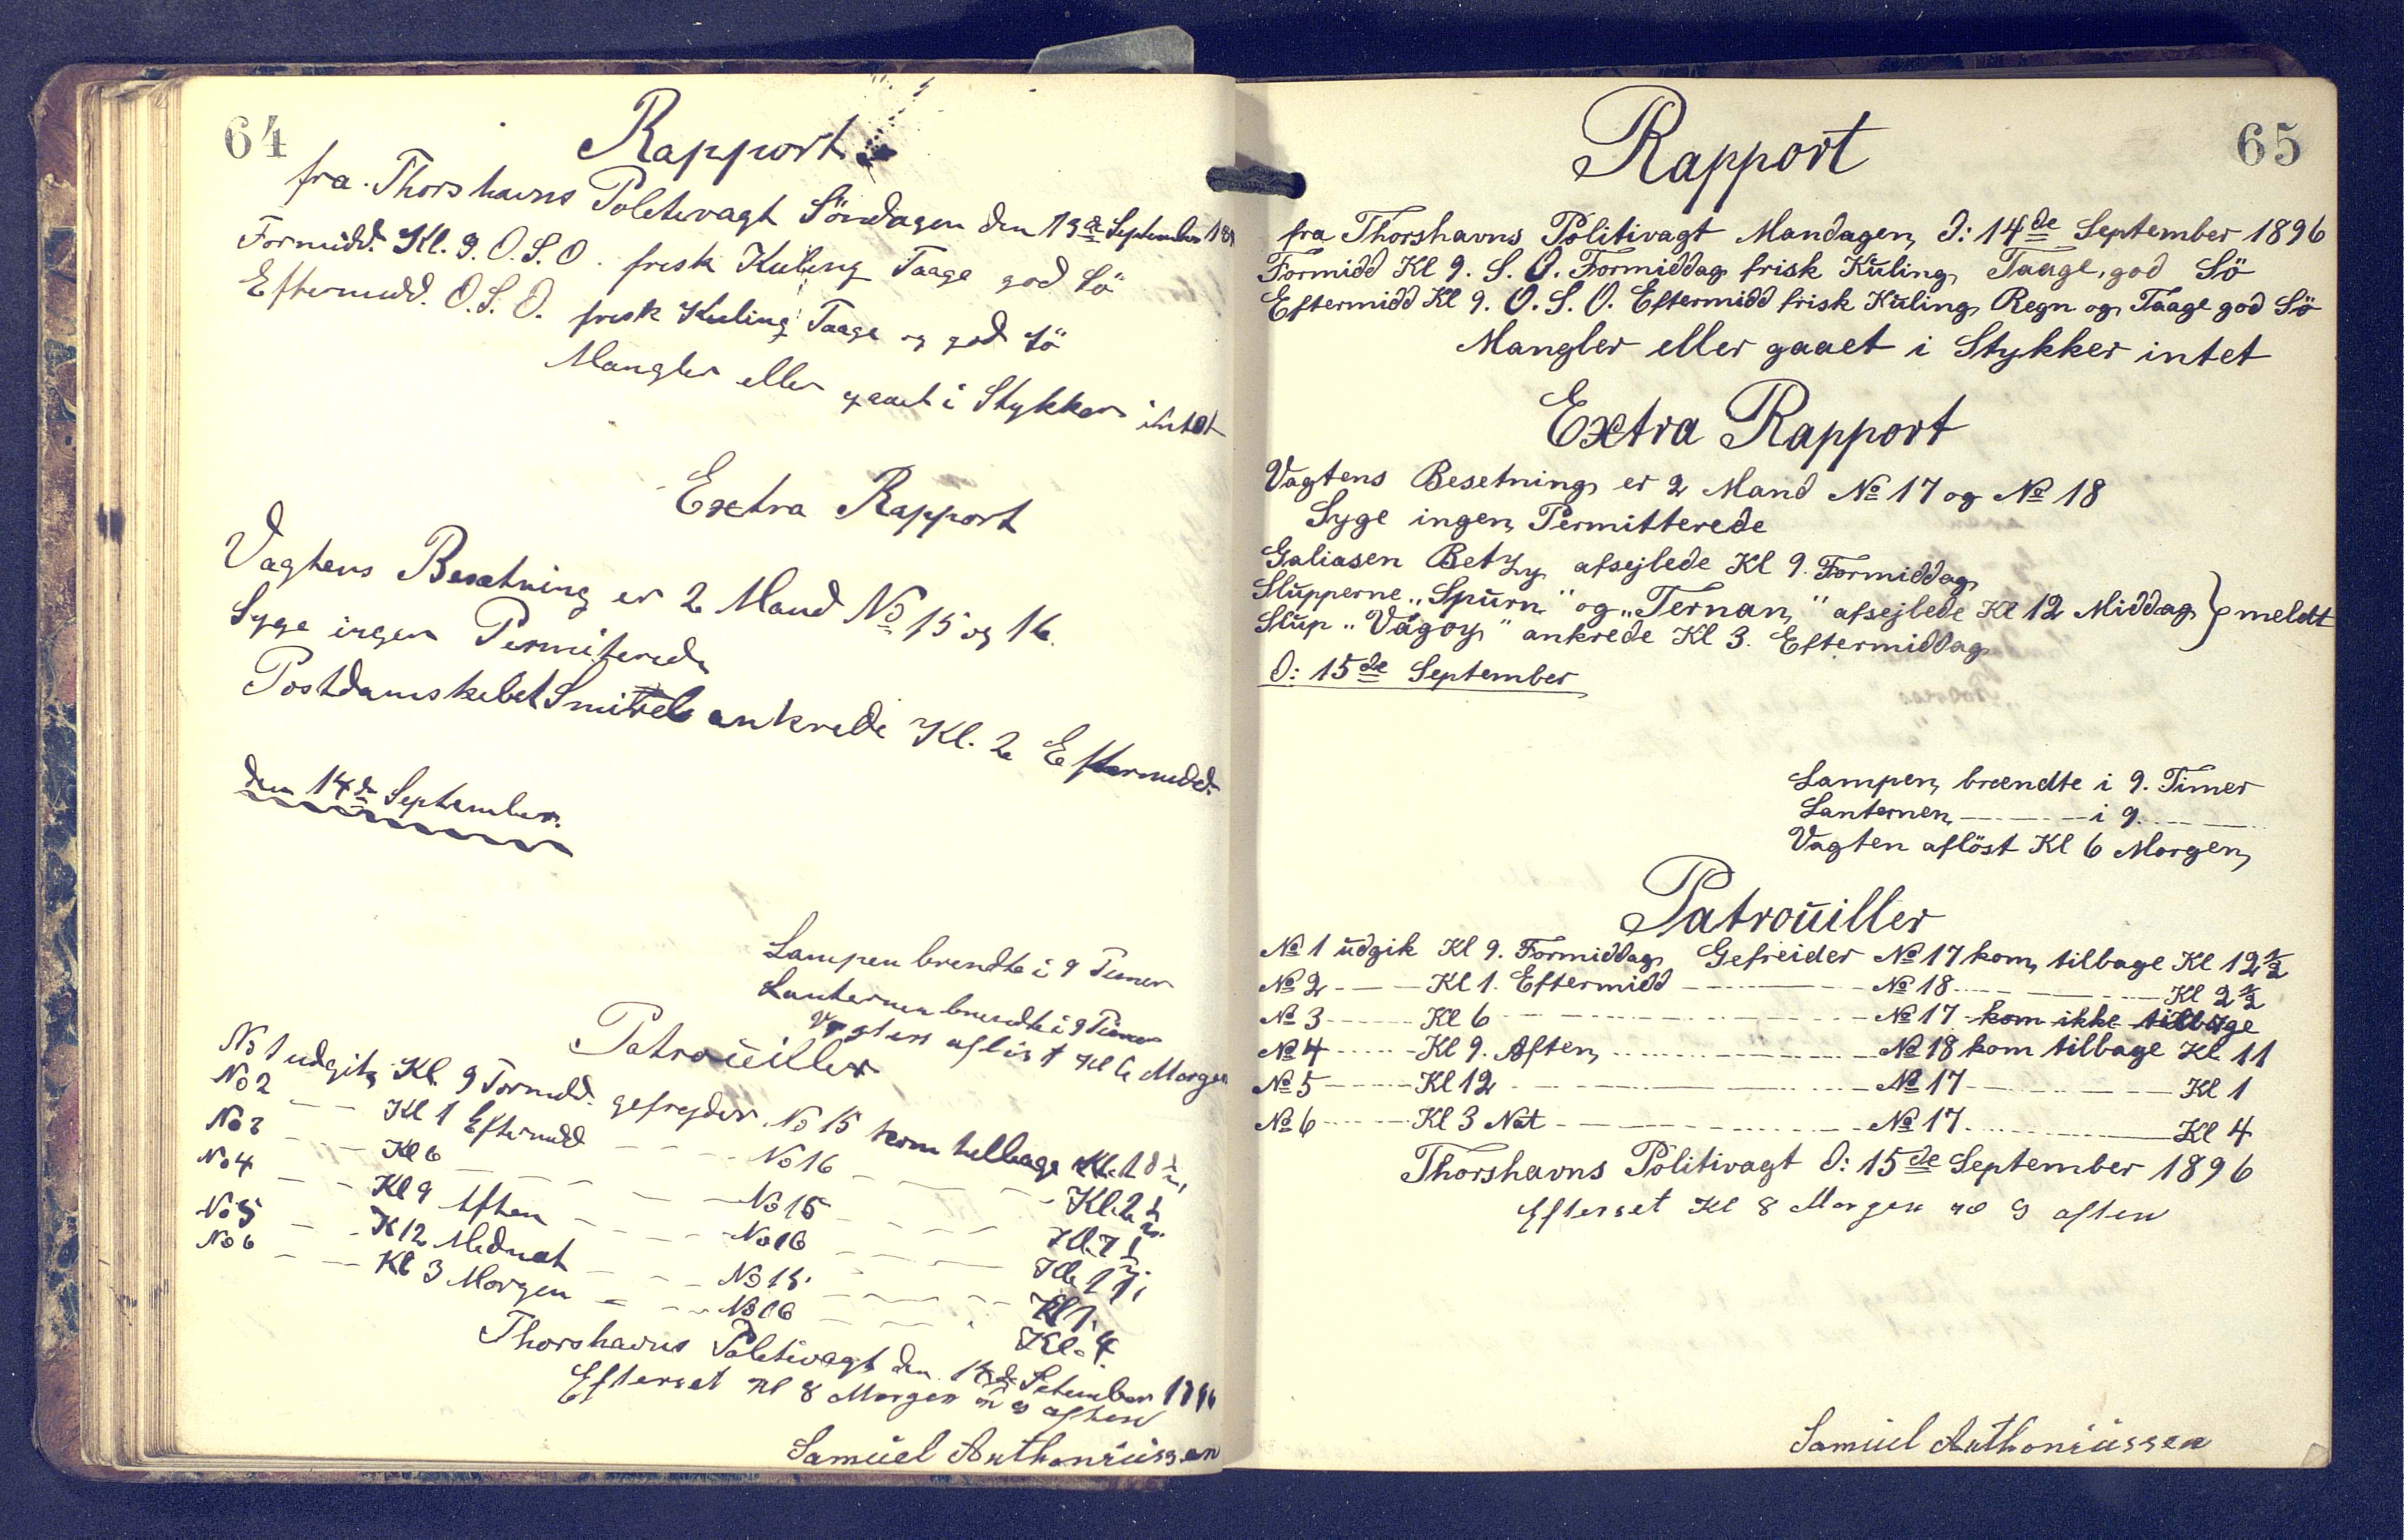 64
Rapport
fra Thorshavns Poletivagt Söndagen den 13de September 189
Formidd. Kl. 9. O.S.O. frisk Kuling Taage god Sö
Eftermidd. O.S.O. frisk Kuling Taage og god Sö
Mangler eller gaaet i Stykker intet
Extra Rapport
Vagtens Besætning er 2 Mand No 15 og 16.
Syge ingen Permiterede
Postdamskibet Smiril ankrede Kl. 2 Eftermidd.
den 14de September.
Lampen brendte i 9 Timer
Lanternen brendte i 9 Timer
Vagten aflöst Kl 6 Morgen
Patroüiller
No 1 udgik Kl. 9 Formidd. gefreyder No 15 kom tilbage Kl.
No 2 — — Kl 1 Eftermidd — — No 16 — — Kl. 2 ½
No 3 — — Kl 6 — — No 15 — — Kl. 7 ½
No 4 — — Kl 9 Aften — — No 16 — — Kl. 11
No 5 — — Kl 12 Midnat — — No 15. — — Kl 1.
No 6 — — Kl 3 Morgen — — No 16 — — Kl. 4.
Thorshavns Poletivagt den 14de Setember 1896
Efterset Kl 8 Morgen og 9 aften
Samüel Anthoniüssen
65
Rapport
fra Thorshavns Politivagt Mandagen, d: 14de September 1896
Formidd Kl 9. S. O. Formiddag frisk Kuling, Taage, god Sö
Eftermidd Kl 9. O. S. O. Eftermidd frisk Kuling, Regn og Taage god Sö
Mangler eller gaaet i Stykker intet
Extra Rapport
Vagtens Besetning er 2 Mand No 17 og No 18
Syge ingen, Permitterede
Galiasen Betzy afsejlede Kl 9. Formiddag
Slupperne „Spurn" og „Ternan" afsejlede Kl 12 Middag } meldt
Slup „Vágoy" ankrede Kl 3. Eftermiddag
d: 15de September
Lampen, brændte i 9. Timer
Lanternen, — — — i 9. — — —
Vagten aflöst Kl 6 Morgen,
Patroüiller
No 1 udgik Kl 9. Formiddag, Gefreider No 17 kom, tilbage Kl 12 ½
No 2 — — Kl 1. Eftermidd — — No 18 — — Kl 2 ½
No 3 — — Kl 6 — — No 17 kom ikke tilbage
No 4 — — Kl 9. Aften, — — No 18 kom tilbage Kl 11
No 5 — — Kl 12 — — No 17 — — Kl 1
No 6 — — Kl 3 Nat — — No 17 — — Kl 4
Thorshavns Politivagt d: 15de September 1896
Efterset Kl 8 Morgen og 9 aften
Samüel Anthoniüssen